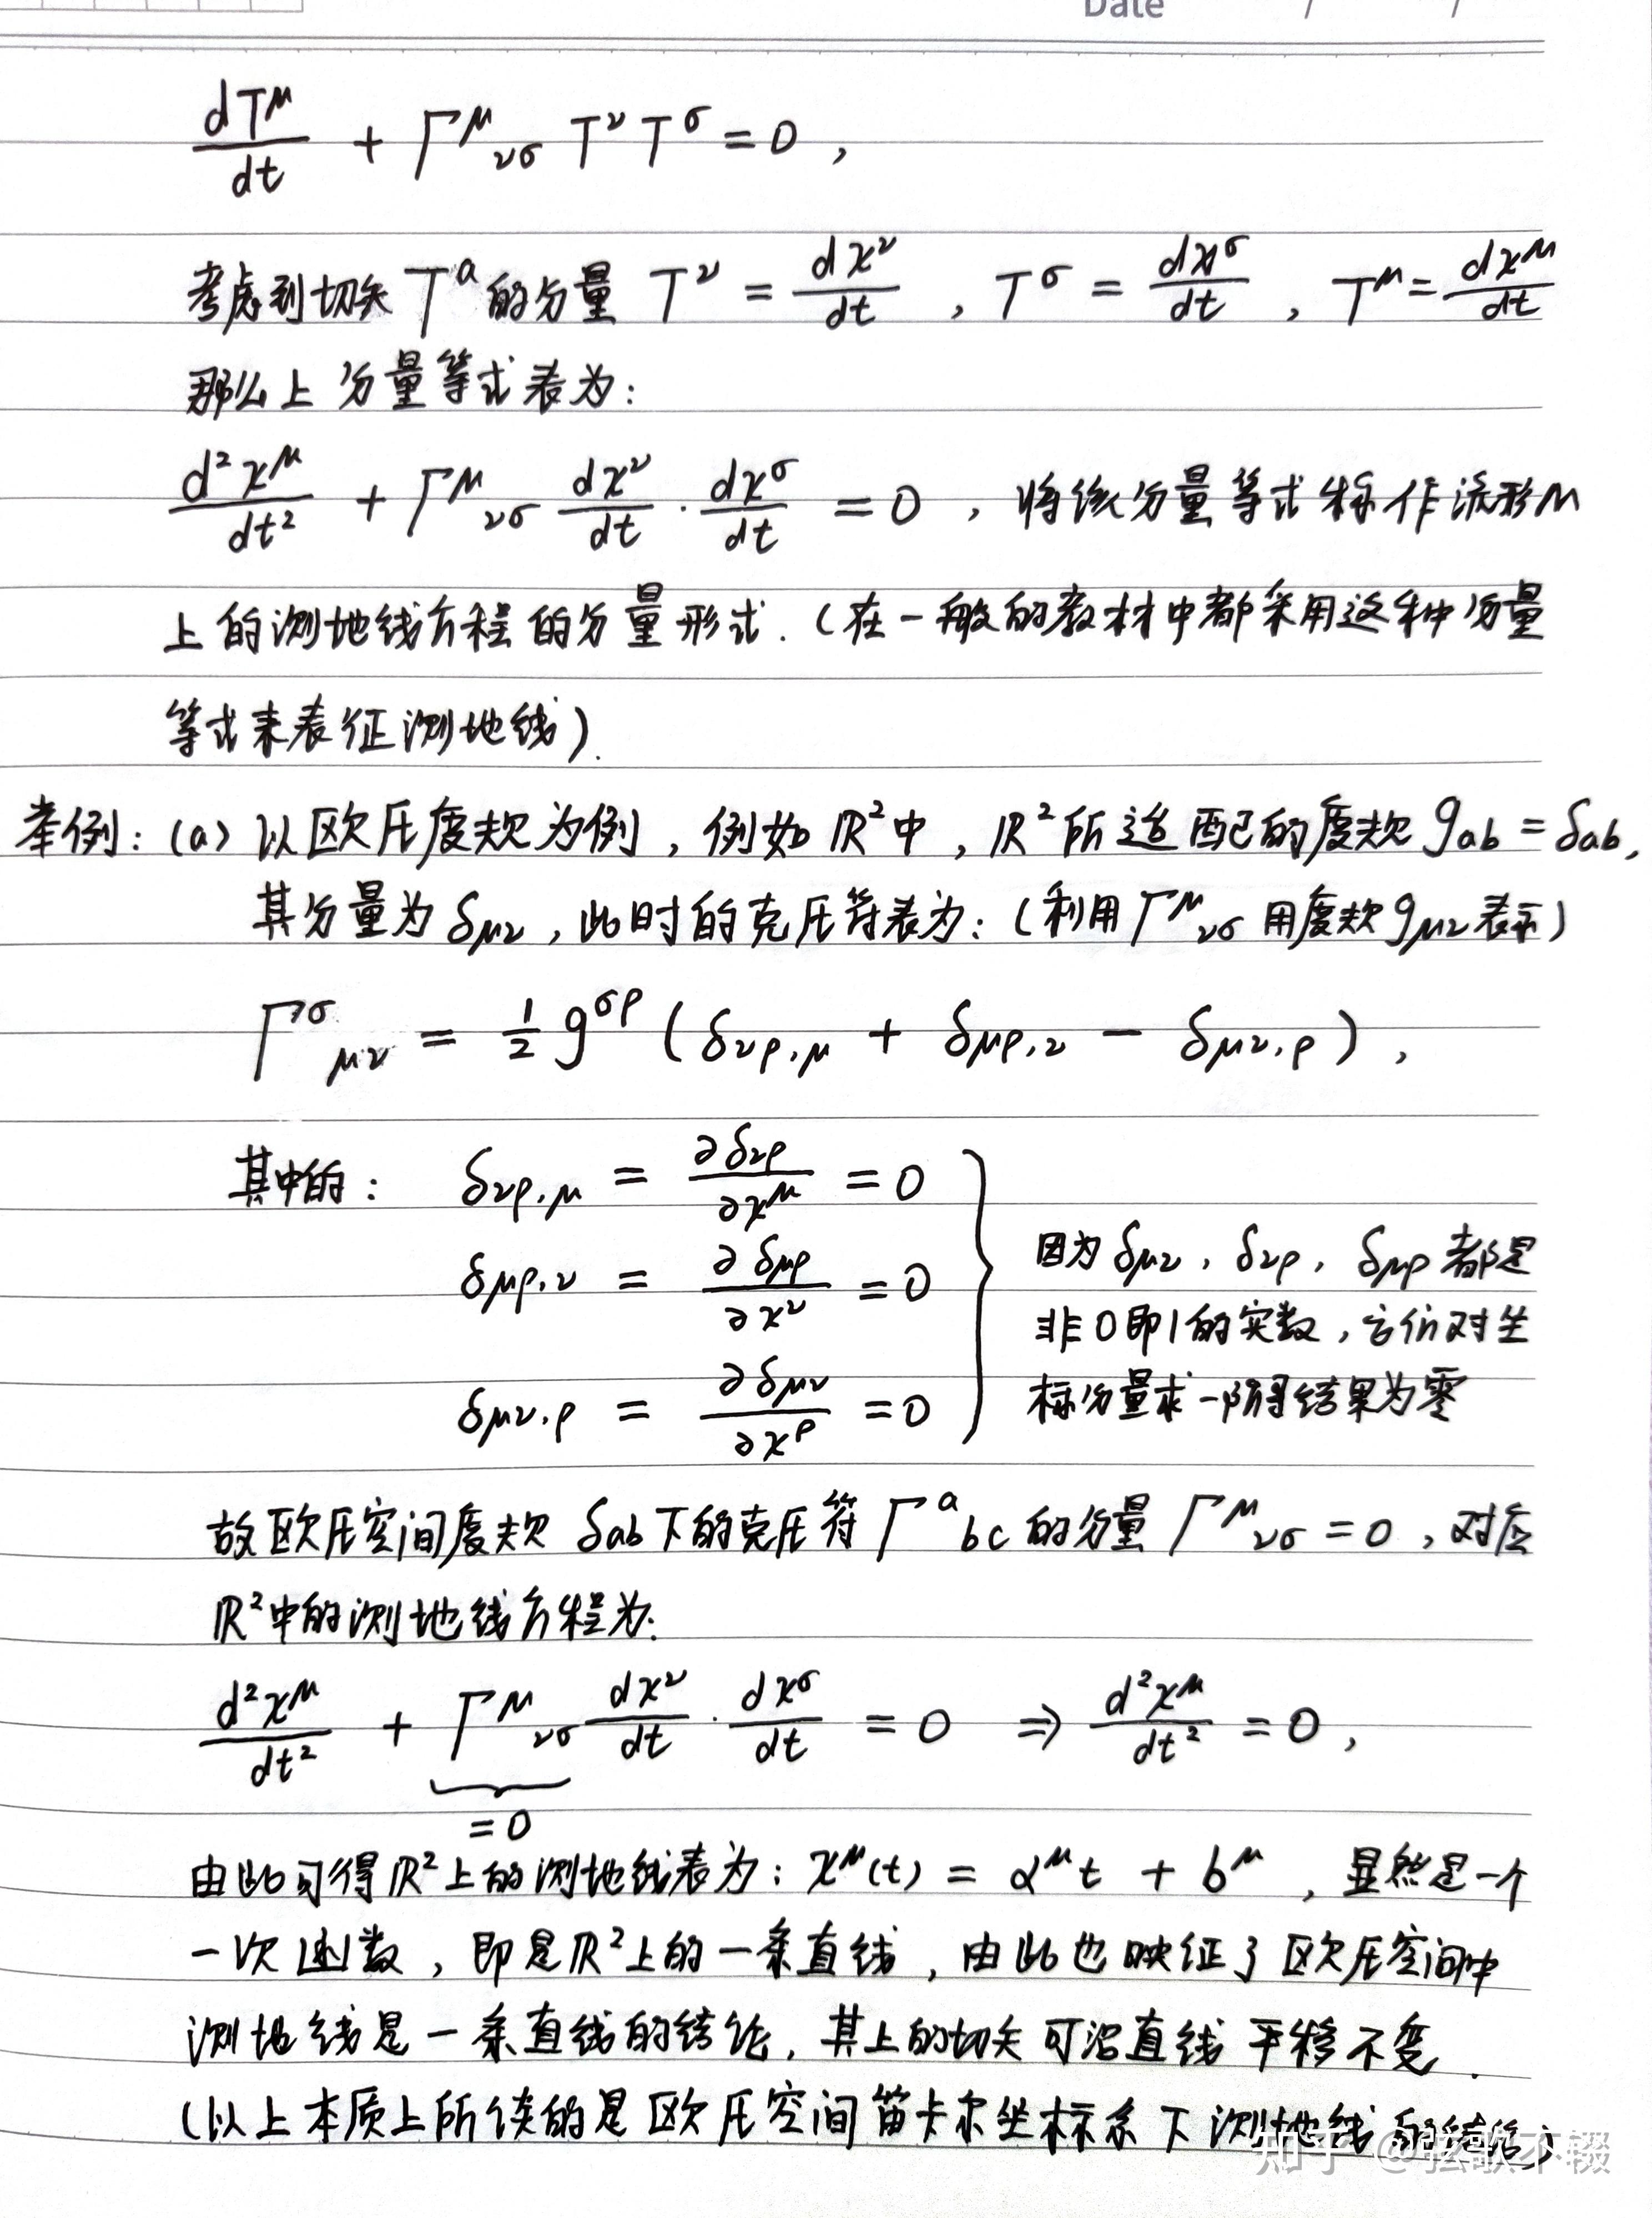 Date / /
dT^μ/dt + Γ^μ_νσ T^ν T^σ = 0,
考虑到切矢 T^a 的分量 T^ν = dx^ν/dt , T^σ = dx^σ/dt , T^μ = dx^μ/dt
那么上分量等式表为:
d²x^μ/dt² + Γ^μ_νσ dx^ν/dt · dx^σ/dt = 0 , 将该分量等式称作流形M
上的测地线方程的分量形式.(在一般的教材中都采用这种分量
等式来表征测地线).
举例:(a) 以欧氏度规为例, 例如 ℝ²中, ℝ²所适配的度规 g_ab = δ_ab,
其分量为 δ_μν, 此时的克氏符表为:(利用 Γ^μ_νσ 用度规 g_μν 表示)
Γ^σ_μν = 1/2 g^σρ (δ_νρ,μ + δ_μρ,ν − δ_μν,ρ),
其中的: δ_νρ,μ = ∂δ_νρ/∂x^μ = 0
δ_μρ,ν = ∂δ_μρ/∂x^ν = 0
δ_μν,ρ = ∂δ_μν/∂x^ρ = 0
因为 δ_μν, δ_νρ, δ_μρ 都是
非0即1的实数, 它们对坐
标分量求一阶导结果为零
故欧氏空间度规 δ_ab 下的克氏符 Γ^a_bc 的分量 Γ^μ_νσ = 0, 对应
ℝ²中的测地线方程为:
d²x^μ/dt² + Γ^μ_νσ dx^ν/dt · dx^σ/dt = 0 ⇒ d²x^μ/dt² = 0,
= 0
由此可得 ℝ²上的测地线表为: x^μ(t) = α^μ t + b^μ , 显然是一个
一次函数, 即是ℝ²上的一条直线, 由此也映证了欧氏空间中
测地线是一条直线的结论, 其上的切矢可沿直线平移不变.
(以上本质上所谈的是欧氏空间笛卡尔坐标系下测地线的结论)
知乎 @弦歌不辍